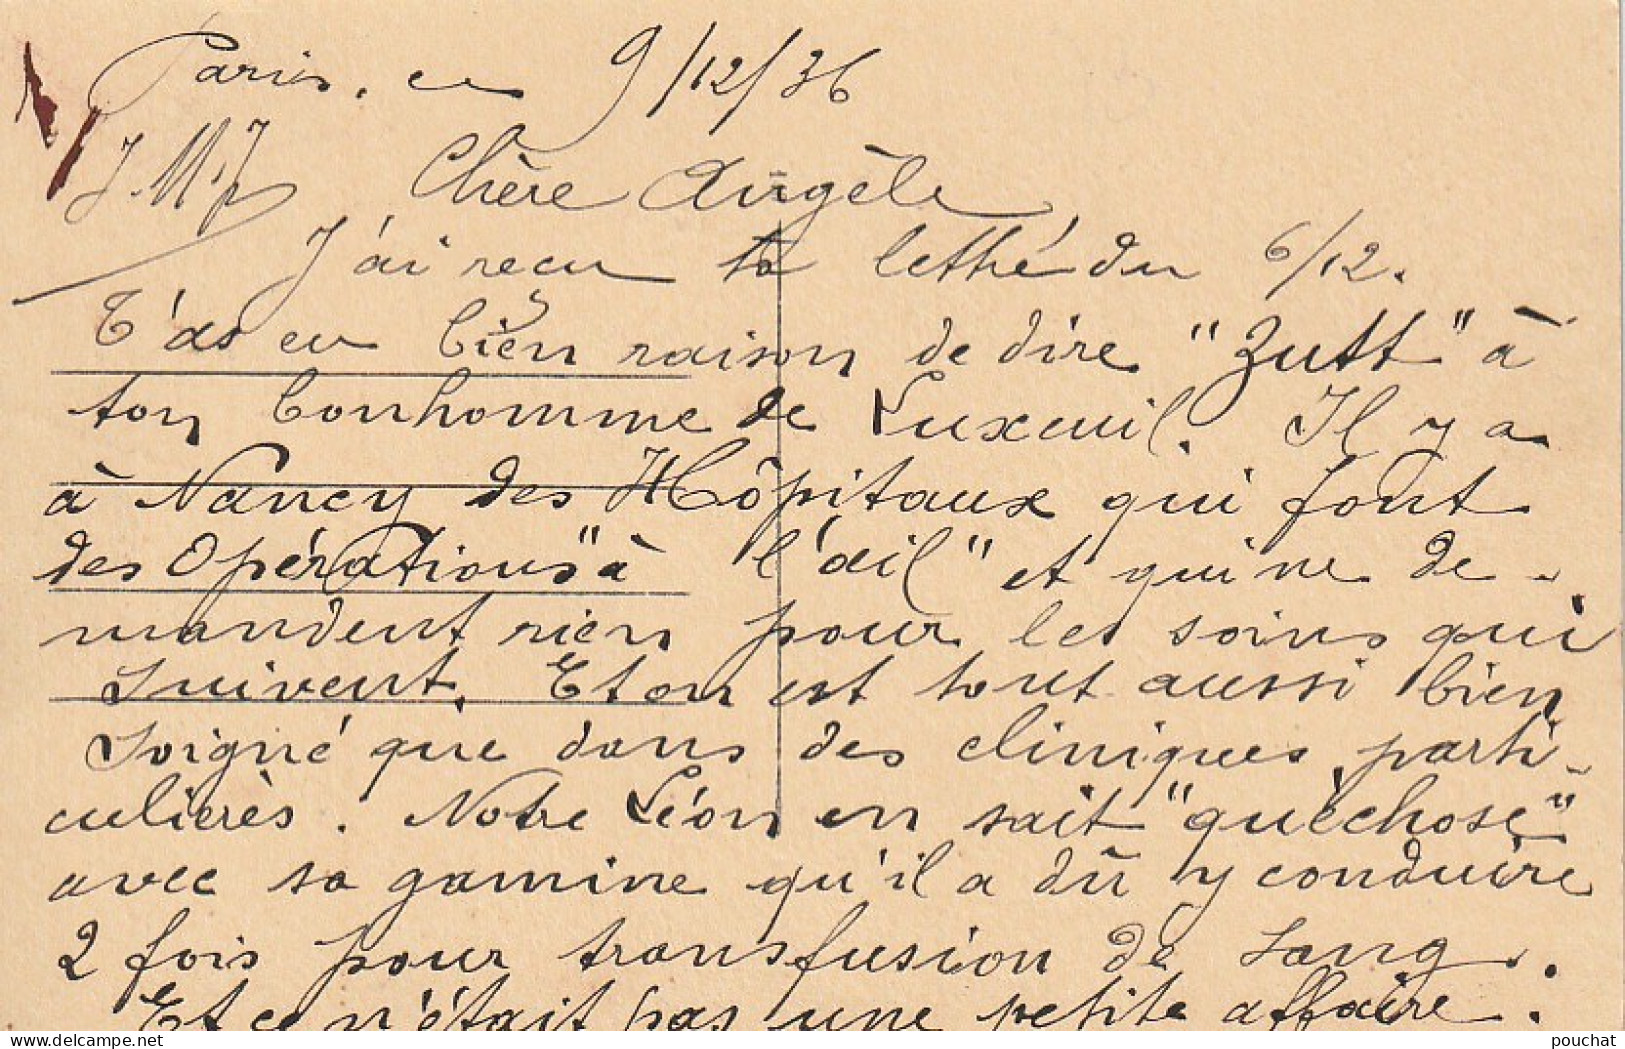 Paris, ce 9/12/36
J.M.J Chère Angèle
J'ai reçu ta lettre du 6/12.
T'as eu bien raison de dire "Zutt" à
ton bonhomme de Luxeuil. Il y a
à Nancy des Hôpitaux qui font
des Opérations "à l'œil" et qui ne de-
mandent rien pour les soins qui
suivent. Et on est tout aussi bien
soigné que dans des cliniques parti-
culières. Notre Léon en sait "quéchose"
avec sa gamine qu'il a dû y conduire
2 fois pour transfusion de sang.
Et ce n'était pas une petite affaire.
pouchat